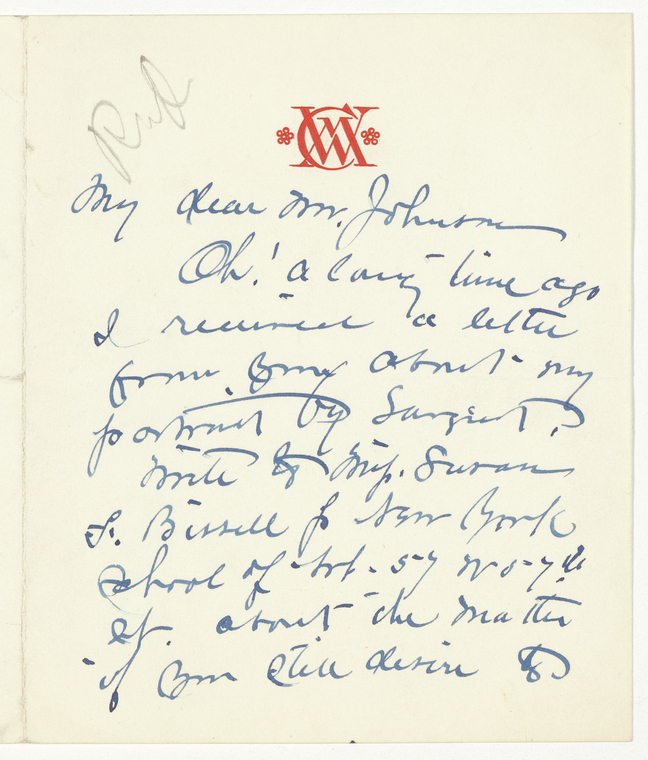 Rud
WMC
My dear Mr. Johnson
Oh! a long time ago
I received a letter
from you about my
portrait by Sargent.
Write to Miss. Susan
F. Bissell % New York
School of Art - 57 W 57th
St. about the matter
if you still desire to